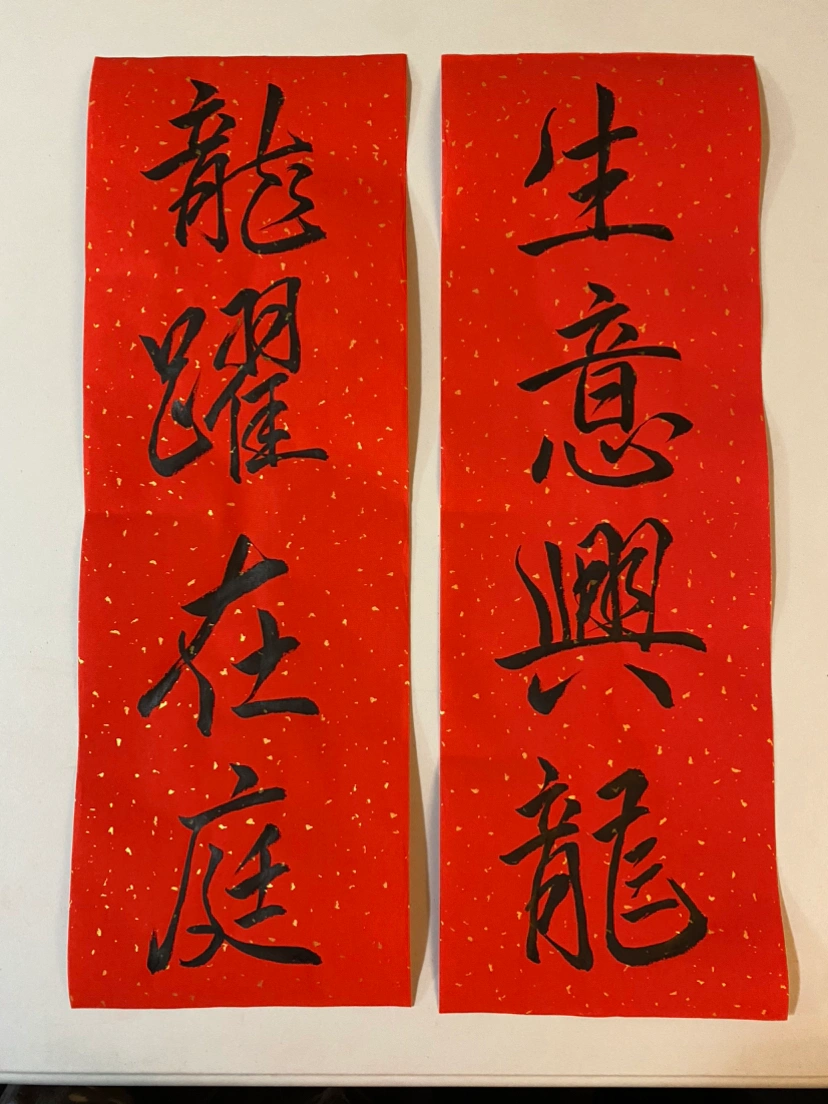 生意興龍
龍躍在庭